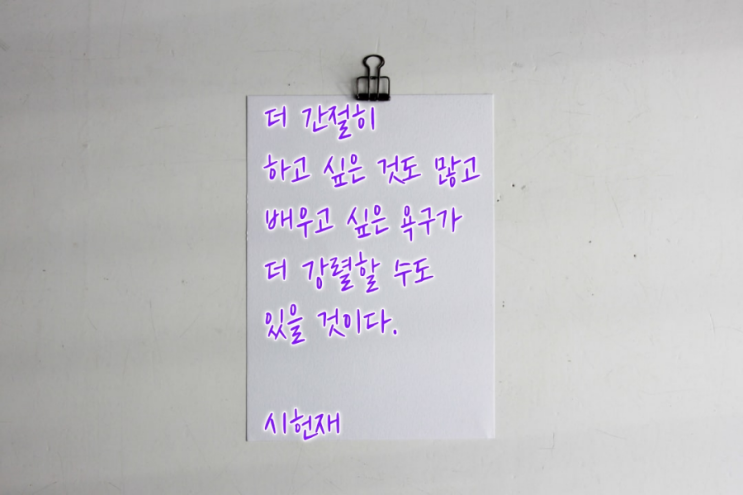 더 간절히
하고 싶은 것도 많고
배우고 싶은 욕구가
더 강렬할 수도
있을 것이다.
시헌재